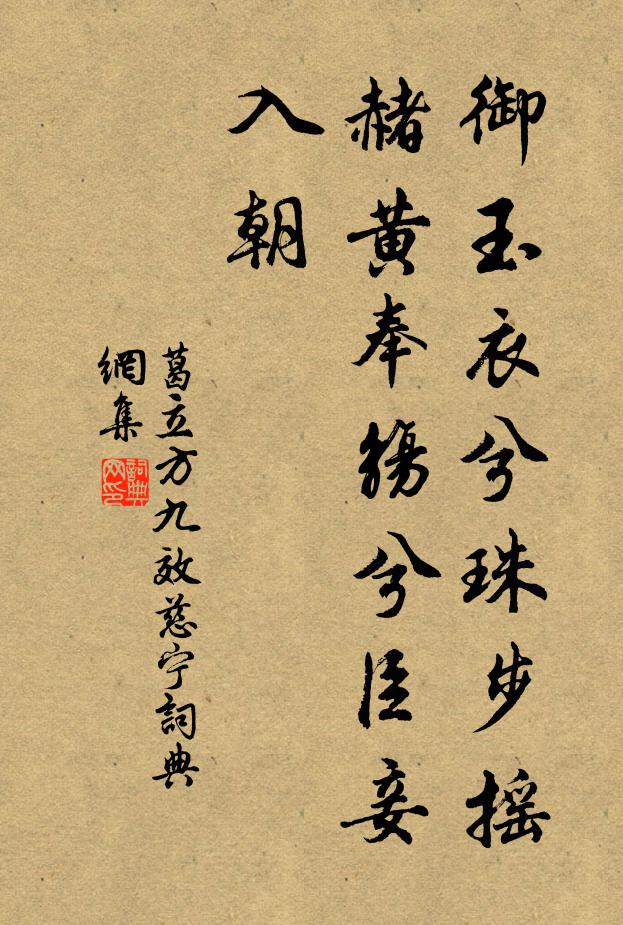 御玉衣兮珠步摇
赭黄奉觞兮臣妾
入朝
葛立方九效慈宁詞典
網集
詞典网印